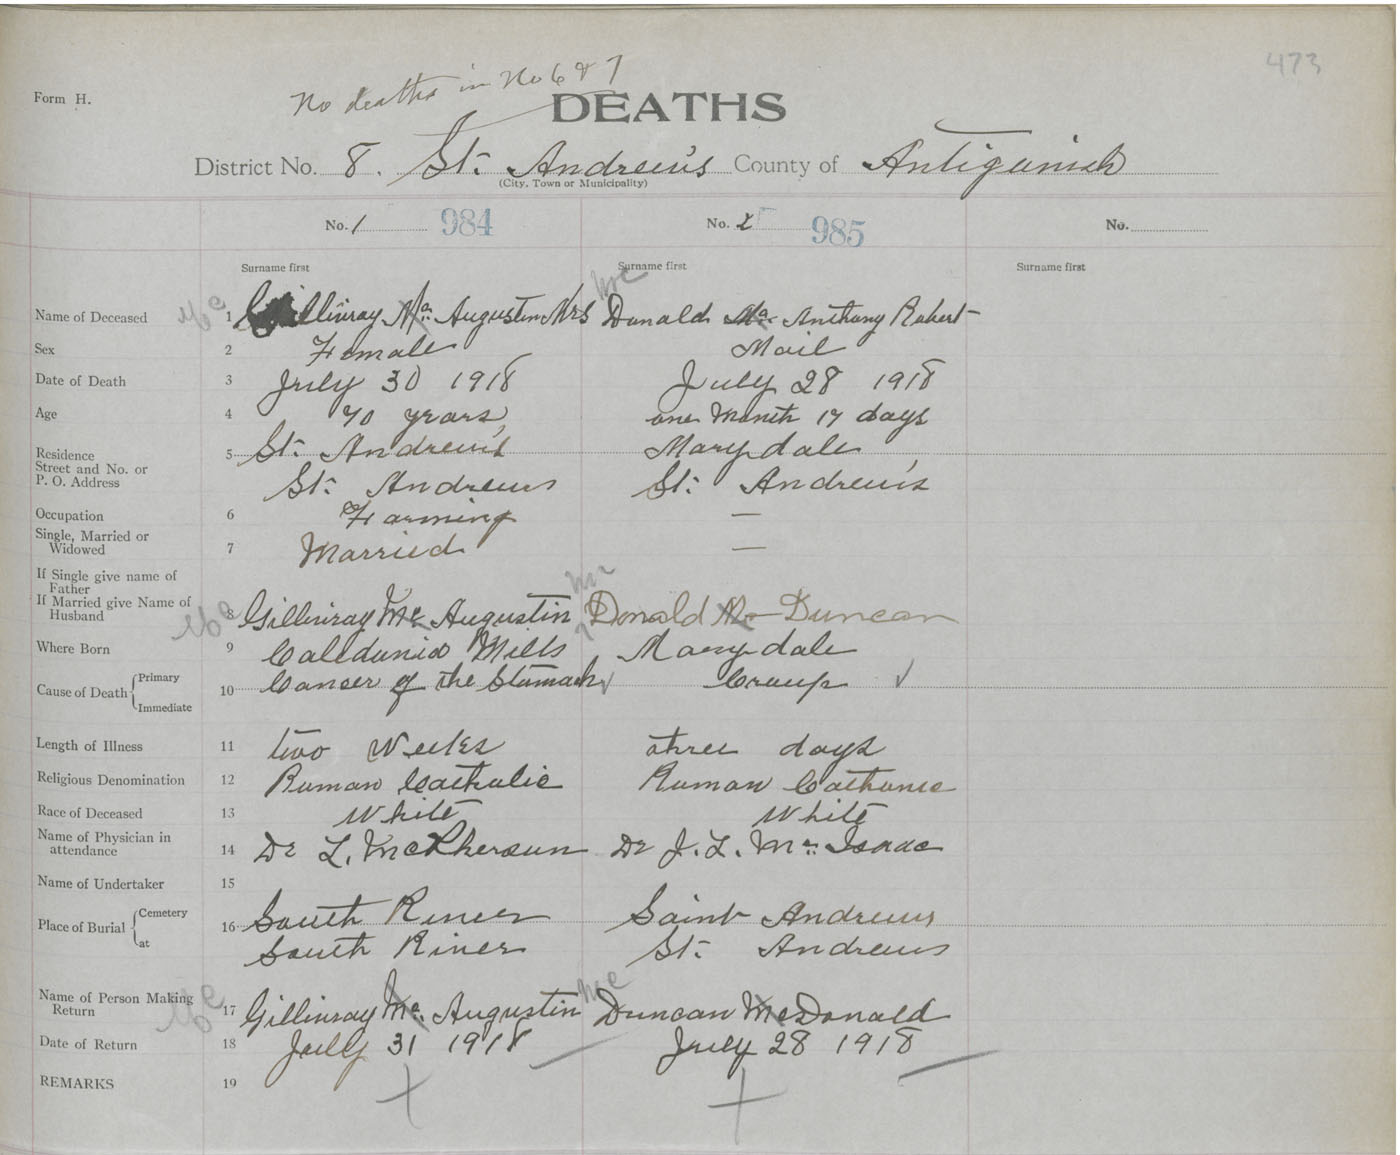 473
No deaths in No 6 & 7
Form H.
DEATHS
District No. 8. St. Andrew's County of Antigonish
(City, Town or Municipality)
No. 1 984 No. 2 985 No.
Surname first Surname first Surname first
Mc Mc
Name of Deceased 1 Gillivray Mc Augustin Mrs Donald Mc Anthony Robert
Sex 2 Female Mail
Date of Death 3 July 30 1918 July 28 1918
Age 4 70 years one Month 17 days
Residence 5 St. Andrew's Marydale
Street and No. or
P. O. Address St. Andrews St. Andrew's
Occupation 6 Farming —
Single, Married or
Widowed 7 Married —
If Single give name of
Father
If Married give Name of
Husband 8 Mc Gillivray Mc Augustin Mc Donald Mc Duncan
Where Born 9 Caledonia Mills Marydale
Cause of Death { Primary Immediate 10 Cancer of the Stomach ✓ Croup ✓
Length of Illness 11 two Weeks three days
Religious Denomination 12 Roman Catholic Roman Catholic
Race of Deceased 13 White White
Name of Physician in
attendance 14 Dr L. McPherson Dr J. L. Mc Isaac
Name of Undertaker 15
Place of Burial { Cemetery 16 South River Saint Andrews
at South River St. Andrews
Name of Person Making
Return 17 Mc Gillivray Mc Augustin Mc Duncan McDonald
Date of Return 18 July 31 1918 July 28 1918
REMARKS 19